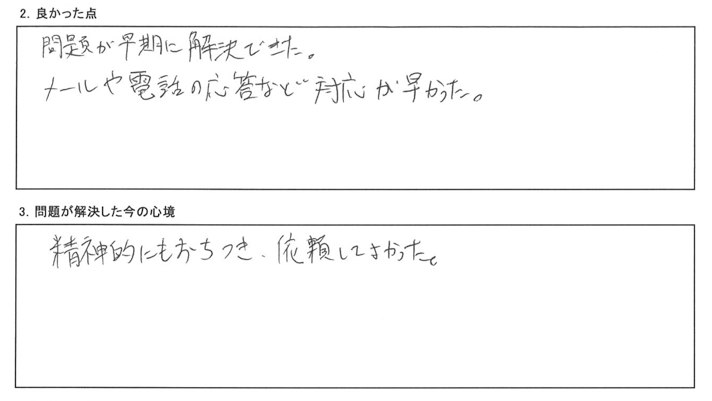 2. 良かった点
問題が早期に解決できた。
メールや電話の応答など対応が早かった。
3. 問題が解決した今の心境
精神的にもおちつき、依頼してよかった。